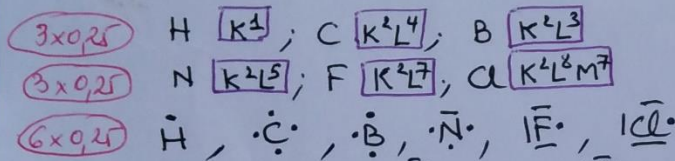 3x0,25 H K¹ ; C K²L⁴ ; B K²L³
3x0,25 N K²L⁵ ; F K²L⁷ ; Cl K²L⁸M⁷
6x0,25 H , C , B , N , F , Cl